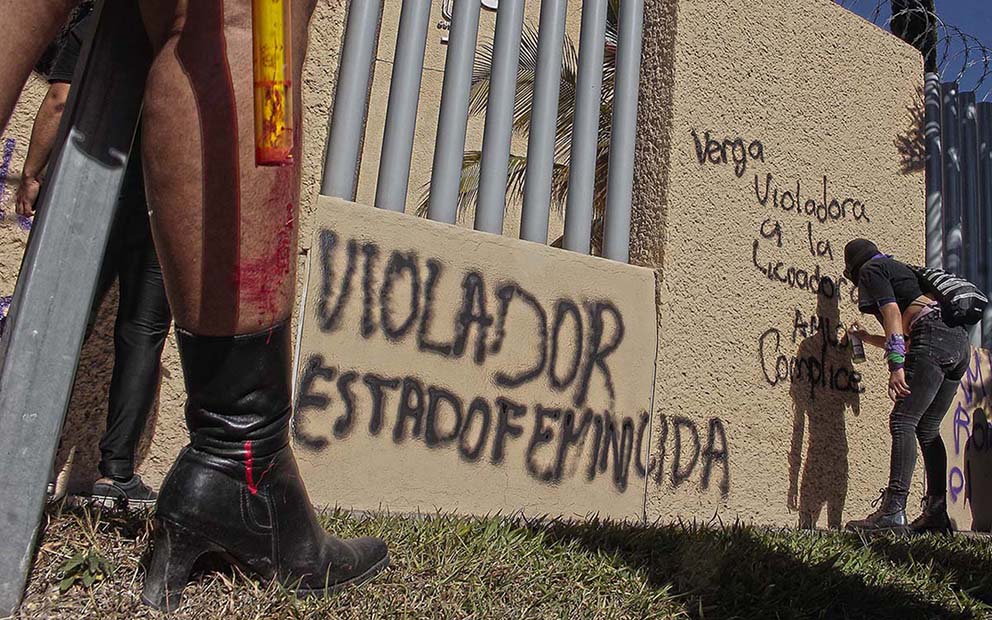 VIOLADOR
ESTADOFEMINICIDA
Verga
Violadora
a la
Licuadora
AMLO
Complice